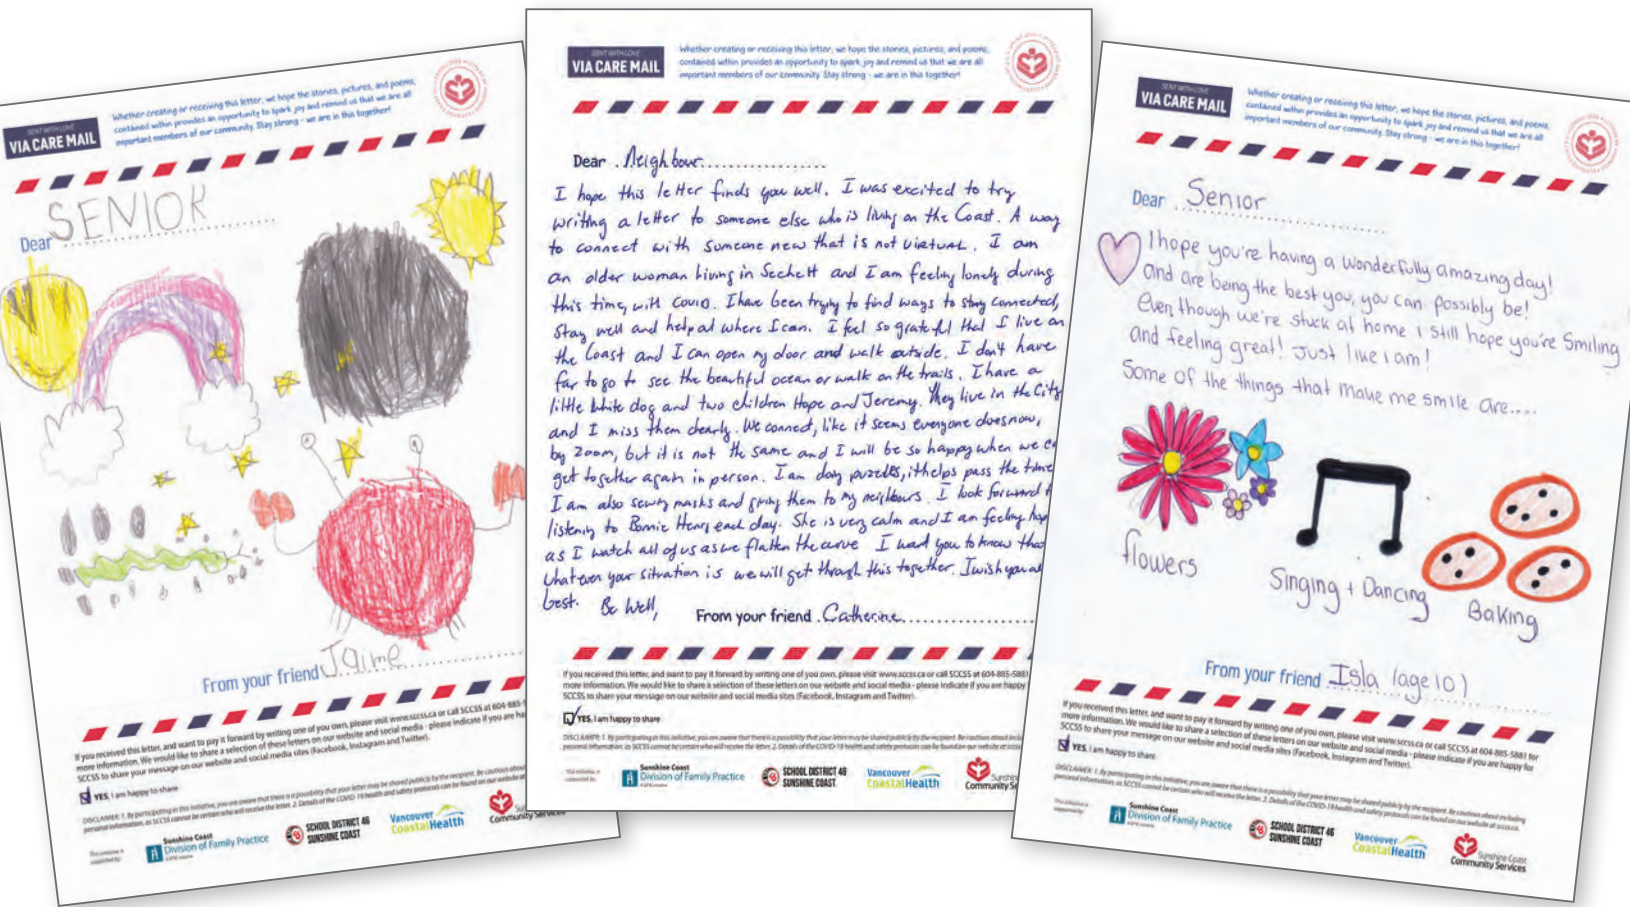 SENT WITH LOVE
VIA CARE MAIL
Whether creating or receiving this letter, we hope the stories, pictures, and poems,
contained within provides an opportunity to spark joy and remind us that we are all
important members of our community. Stay strong - we are in this together!
Dear SENIOR
From your friend Jaime
If you received this letter, and want to pay it forward by writing one of you own, please visit www.sccss.ca or call SCCSS at 604-885-
more information. We would like to share a selection of these letters on our website and social media - please indicate if you are hap
SCCSS to share your message on our website and social media sites (Facebook, Instagram and Twitter).
YES, I am happy to share
DISCLAIMER: 1. By participating in this initiative, you are aware that there is a possibility that your letter may be shared publicly by the recipient. Be cautious about
personal information, as SCCSS cannot be certain who will receive the letter. 2. Details of the COVID-19 health and safety protocols can be found on our website at
This initiative is
supported by:
Sunshine Coast
Division of Family Practice
SCHOOL DISTRICT 46
SUNSHINE COAST
Vancouver
CoastalHealth
Community Services
SENT WITH LOVE
VIA CARE MAIL
Whether creating or receiving this letter, we hope the stories, pictures, and poems,
contained within provides an opportunity to spark joy and remind us that we are all
important members of our community. Stay strong - we are in this together!
Dear Neighbour
I hope this letter finds you well. I was excited to try
writing a letter to someone else who is living on the Coast. A way
to connect with someone new that is not virtual. I am
an older woman living in Sechelt and I am feeling lonely during
this time, with COVID. I have been trying to find ways to stay connected,
stay well and help out where I can. I feel so grateful that I live on
the Coast and I can open my door and walk outside. I don't have
far to go to see the beautiful ocean or walk on the trails. I have a
little white dog and two children Hope and Jeremy. They live in the City
and I miss them dearly. We connect, like it seems everyone does now,
by Zoom, but it is not the same and I will be so happy when we c
get together again in person. I am doing puzzles, it helps pass the time
I am also sewing masks and giving them to my neighbours. I look forward t
listening to Bonnie Henry each day. She is very calm and I am feeling hop
as I watch all of us as we flatten the curve I want you to know that
whatever your situation is we will get through this together. I wish you al
best. Be Well,
From your friend Catherine
If you received this letter, and want to pay it forward by writing one of you own, please visit www.sccss.ca or call SCCSS at 604-885-5881
more information. We would like to share a selection of these letters on our website and social media - please indicate if you are happy
SCCSS to share your message on our website and social media sites (Facebook, Instagram and Twitter).
YES, I am happy to share
DISCLAIMER: 1. By participating in this initiative, you are aware that there is a possibility that your letter may be shared publicly by the recipient. Be cautious about inclu
personal information, as SCCSS cannot be certain who will receive the letter. 2. Details of the COVID-19 health and safety protocols can be found on our website at sccss
This initiative is
supported by:
Sunshine Coast
Division of Family Practice
SCHOOL DISTRICT 46
SUNSHINE COAST
Vancouver
CoastalHealth
Sunshin
Community Se
SENT WITH LOVE
VIA CARE MAIL
Whether creating or receiving this letter, we hope the stories, pictures, and poems,
contained within provides an opportunity to spark joy and remind us that we are all
important members of our community. Stay strong - we are in this together!
Dear Senior
I hope you're having a wonderfully amazing day!
and are being the best you, you can possibly be!
Even though we're stuck at home I still hope you're Smiling
and feeling great! Just like I am!
Some of the things that make me smile are....
flowers
Singing + Dancing
Baking
From your friend Isla (age 10)
If you received this letter, and want to pay it forward by writing one of you own, please visit www.sccss.ca or call SCCSS at 604-885-5881 for
more information. We would like to share a selection of these letters on our website and social media - please indicate if you are happy for
SCCSS to share your message on our website and social media sites (Facebook, Instagram and Twitter).
YES, I am happy to share
DISCLAIMER: 1. By participating in this initiative, you are aware that there is a possibility that your letter may be shared publicly by the recipient. Be cautious about including
personal information, as SCCSS cannot be certain who will receive the letter. 2. Details of the COVID-19 health and safety protocols can be found on our website at sccss.ca.
This initiative is
supported by:
Sunshine Coast
Division of Family Practice
SCHOOL DISTRICT 46
SUNSHINE COAST
Vancouver
CoastalHealth
Sunshine Coast
Community Services